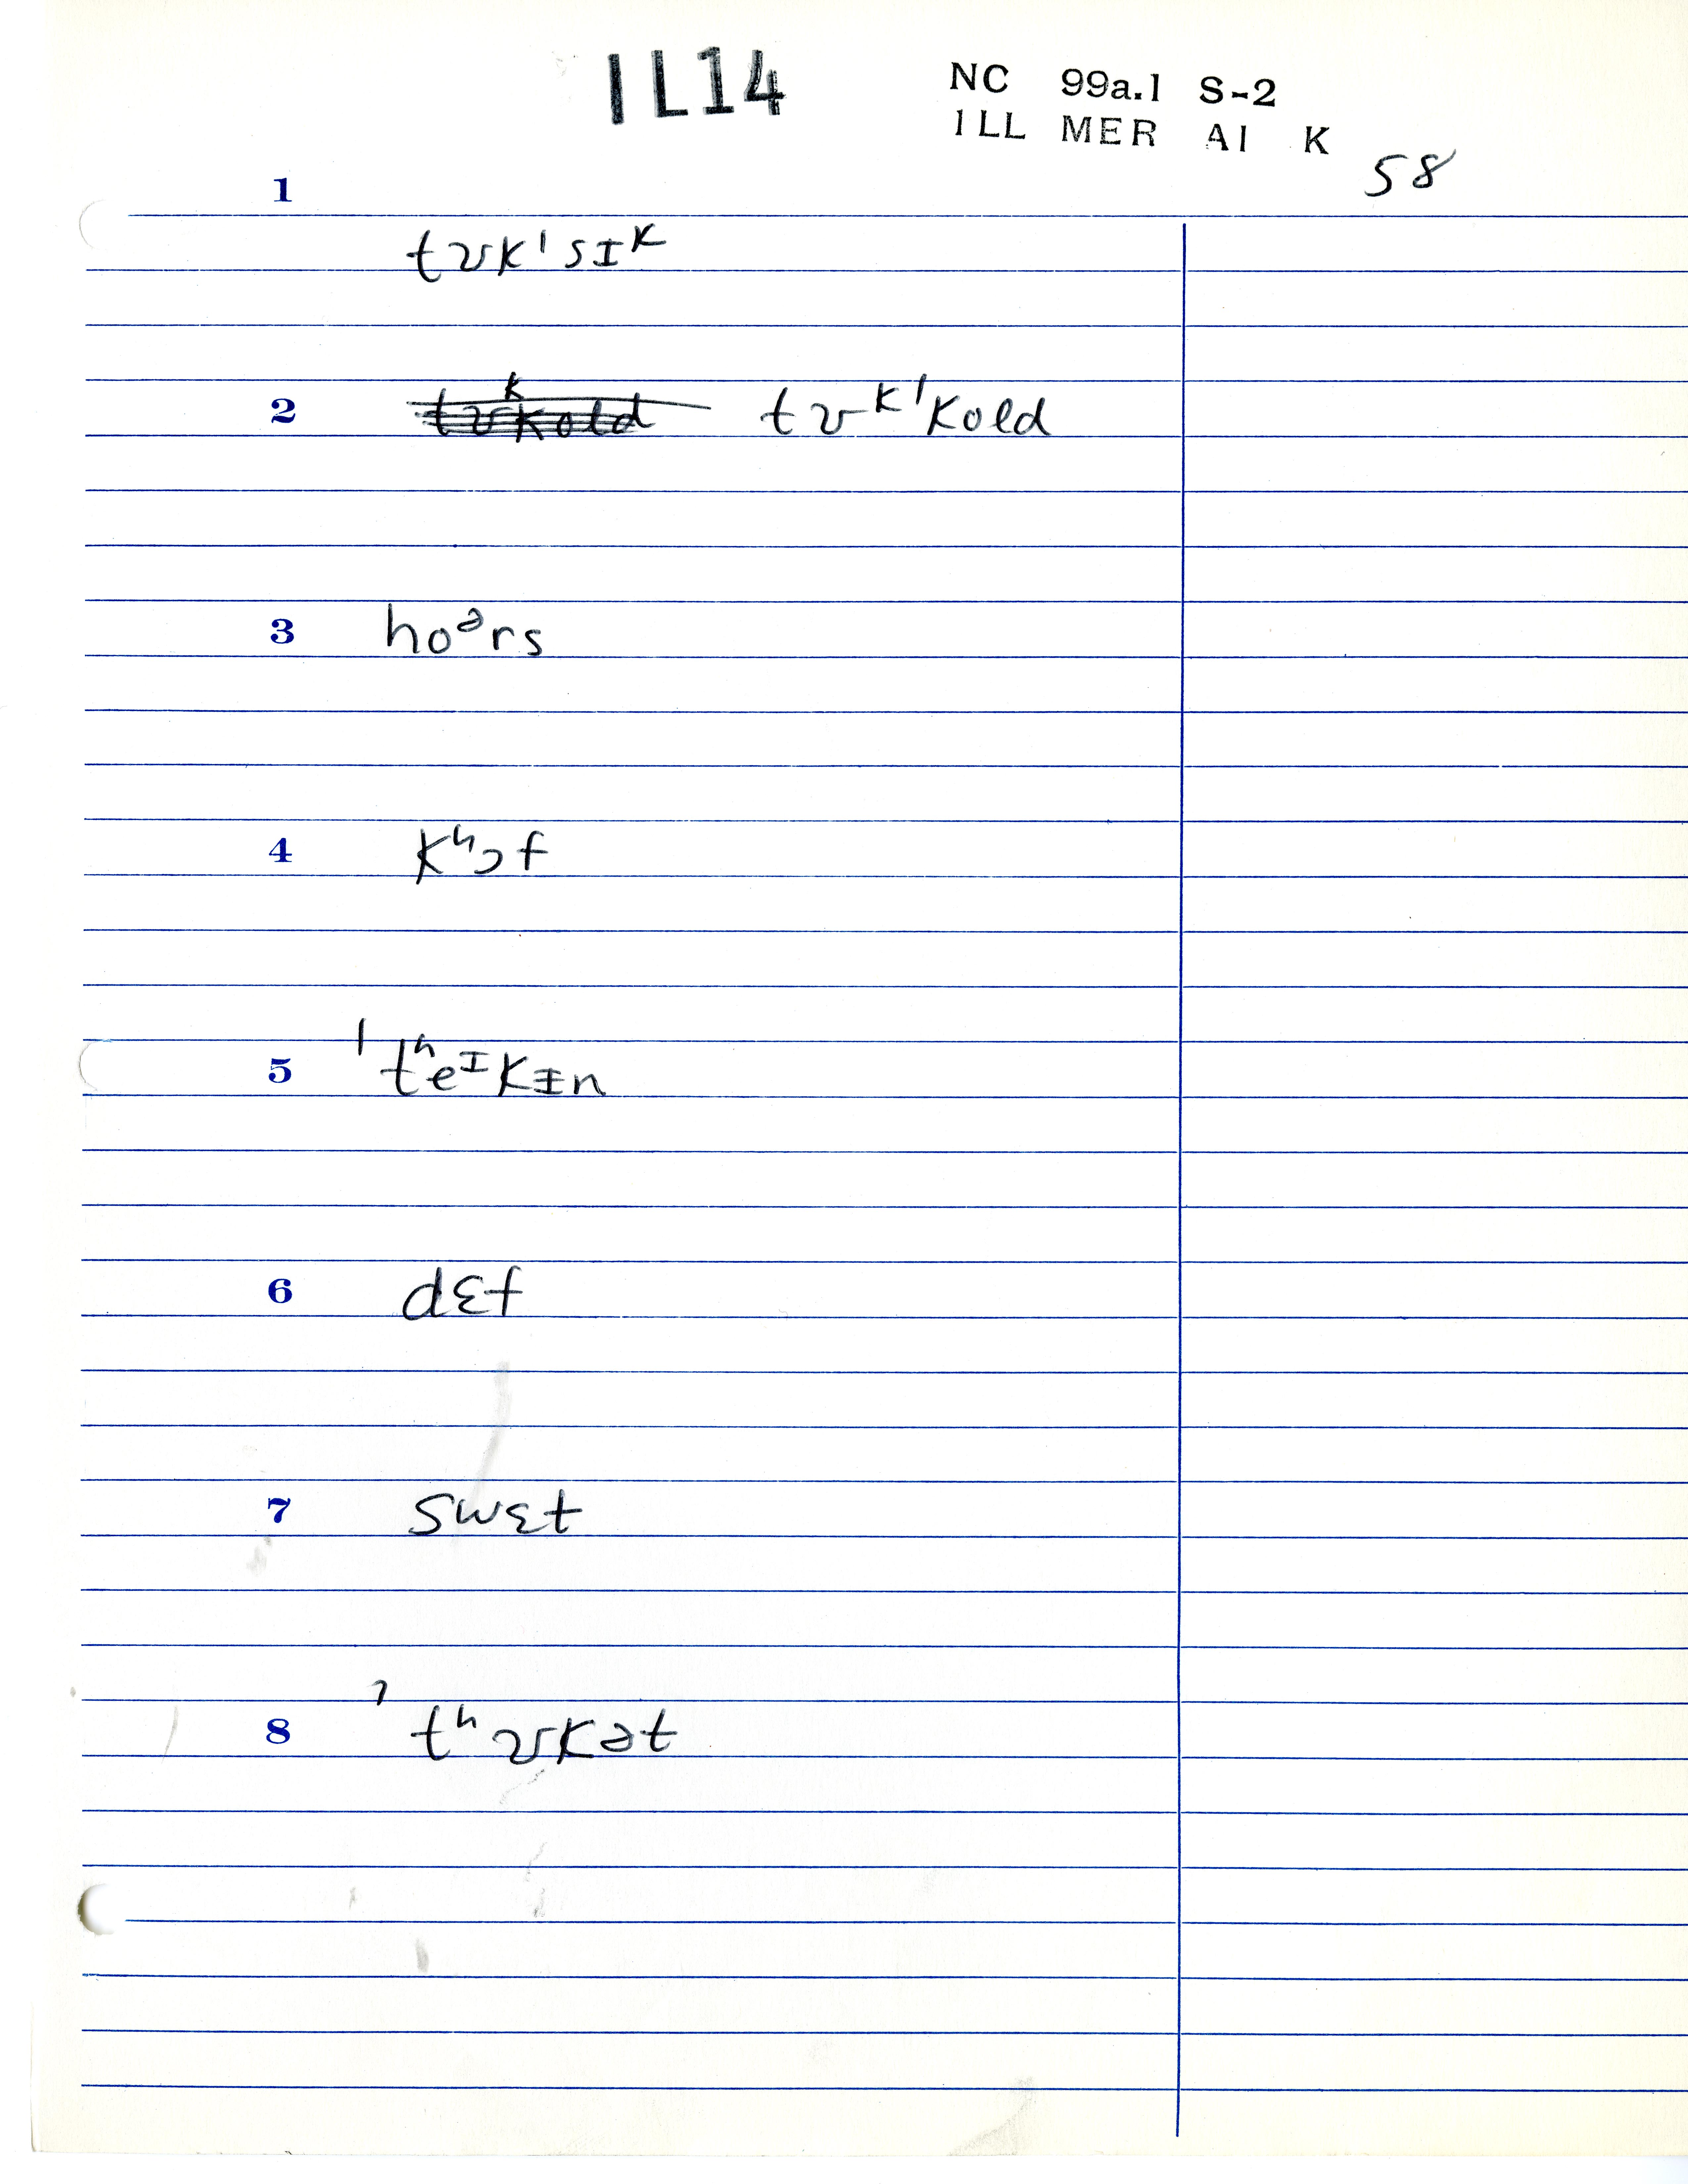 IL14
NC 99a.1 S-2
ILL MER A1 K
58
1
tʊkˈsɪᵏ
2 tʊᵏkold tʊᵏˈkold
3 hoᵊrs
4 kʰɔf
5 ˈtʰeᴵkɪn
6 dɛf
7 swɛt
8 ˈtʰʊkət